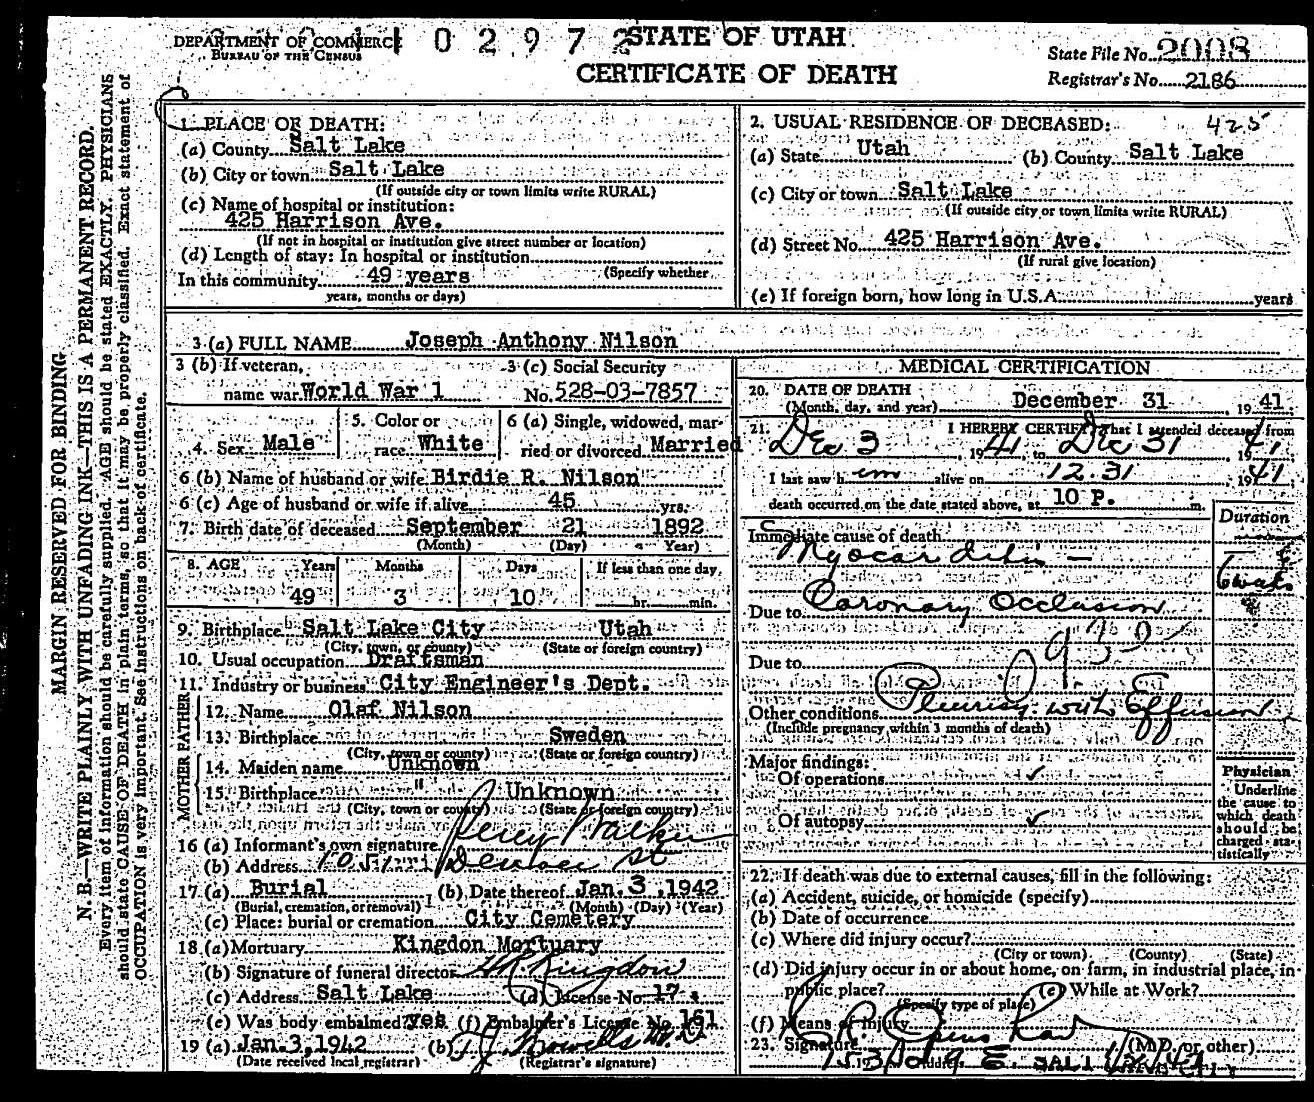 DEPARTMENT OF COMMERCE
BUREAU OF THE CENSUS
0 2 9 7 2
STATE OF UTAH
CERTIFICATE OF DEATH
State File No. 2008
Registrar's No. 2186
MARGIN RESERVED FOR BINDING
N. B.—WRITE PLAINLY WITH UNFADING INK—THIS IS A PERMANENT RECORD.
Every item of information should be carefully supplied. AGE should be stated EXACTLY. PHYSICIANS
should state CAUSE OF DEATH in plain terms, so that it may be properly classified. Exact statement of
OCCUPATION is very important. See instructions on back of certificate.
1. PLACE OF DEATH:
(a) County Salt Lake
(b) City or town Salt Lake
(If outside city or town limits write RURAL)
(c) Name of hospital or institution:
425 Harrison Ave.
(If not in hospital or institution give street number or location)
(d) Length of stay: In hospital or institution
(Specify whether
In this community 49 years
years, months or days)
2. USUAL RESIDENCE OF DECEASED: 425
(a) State Utah (b) County Salt Lake
(c) City or town Salt Lake
(If outside city or town limits write RURAL)
(d) Street No. 425 Harrison Ave.
(If rural give location)
(e) If foreign born, how long in U.S.A. years
3 (a) FULL NAME Joseph Anthony Nilson
3 (b) If veteran, name war World War 1
3 (c) Social Security No. 528-03-7857
4. Sex Male
5. Color or race White
6 (a) Single, widowed, married or divorced Married
6 (b) Name of husband or wife Birdie R. Nilson
6 (c) Age of husband or wife if alive 45 yrs.
7. Birth date of deceased September 21 1892
(Month) (Day) Year)
8. AGE Years Months Days If less than one day,
49 3 10 hr. min.
9. Birthplace Salt Lake City Utah
(City, town, or county) (State or foreign country)
10. Usual occupation Draftsman
11. Industry or business City Engineer's Dept.
FATHER
12. Name Olaf Nilson
13. Birthplace Sweden
(City, town or county) (State or foreign country)
MOTHER
14. Maiden name Unknown
15. Birthplace " Unknown
(City, town or county) (State or foreign country)
16 (a) Informant's own signature Percy Walker
(b) Address
17 (a) Burial (b) Date thereof Jan. 3, 1942
(Burial, cremation, or removal) (Month) (Day) (Year)
(c) Place: burial or cremation City Cemetery
18 (a) Mortuary Kingdon Mortuary
(b) Signature of funeral director Kingdon
(c) Address Salt Lake (d) License No. 17
(e) Was body embalmed? yes (f) Embalmer's License No. 161
19 (a) Jan. 3, 1942 (b)
(Date received local registrar) (Registrar's signature)
MEDICAL CERTIFICATION
20. DATE OF DEATH
(Month, day, and year) December 31, 1941
21. I HEREBY CERTIFY That I attended deceased from
Dec 3, 1941 to Dec 31, 1941
I last saw him alive on 12.31 1941
death occurred on the date stated above, at 10 P. m.
Duration
Immediate cause of death
Myocarditis —
6 wks
Due to Coronary Occlusion
Due to
Other conditions Pleurisy with Effusion
(Include pregnancy within 3 months of death)
Major findings:
Of operations ✓
Of autopsy ✓
Physician
Underline
the cause to
which death
should be
charged sta-
tistically
22. If death was due to external causes, fill in the following:
(a) Accident, suicide, or homicide (specify)
(b) Date of occurrence
(c) Where did injury occur?
(City or town) (County) (State)
(d) Did injury occur in or about home, on farm, in industrial place, in
public place? (e) While at Work?
(Specify type of place)
(f) Means of injury
23. Signature (M.D. or other)